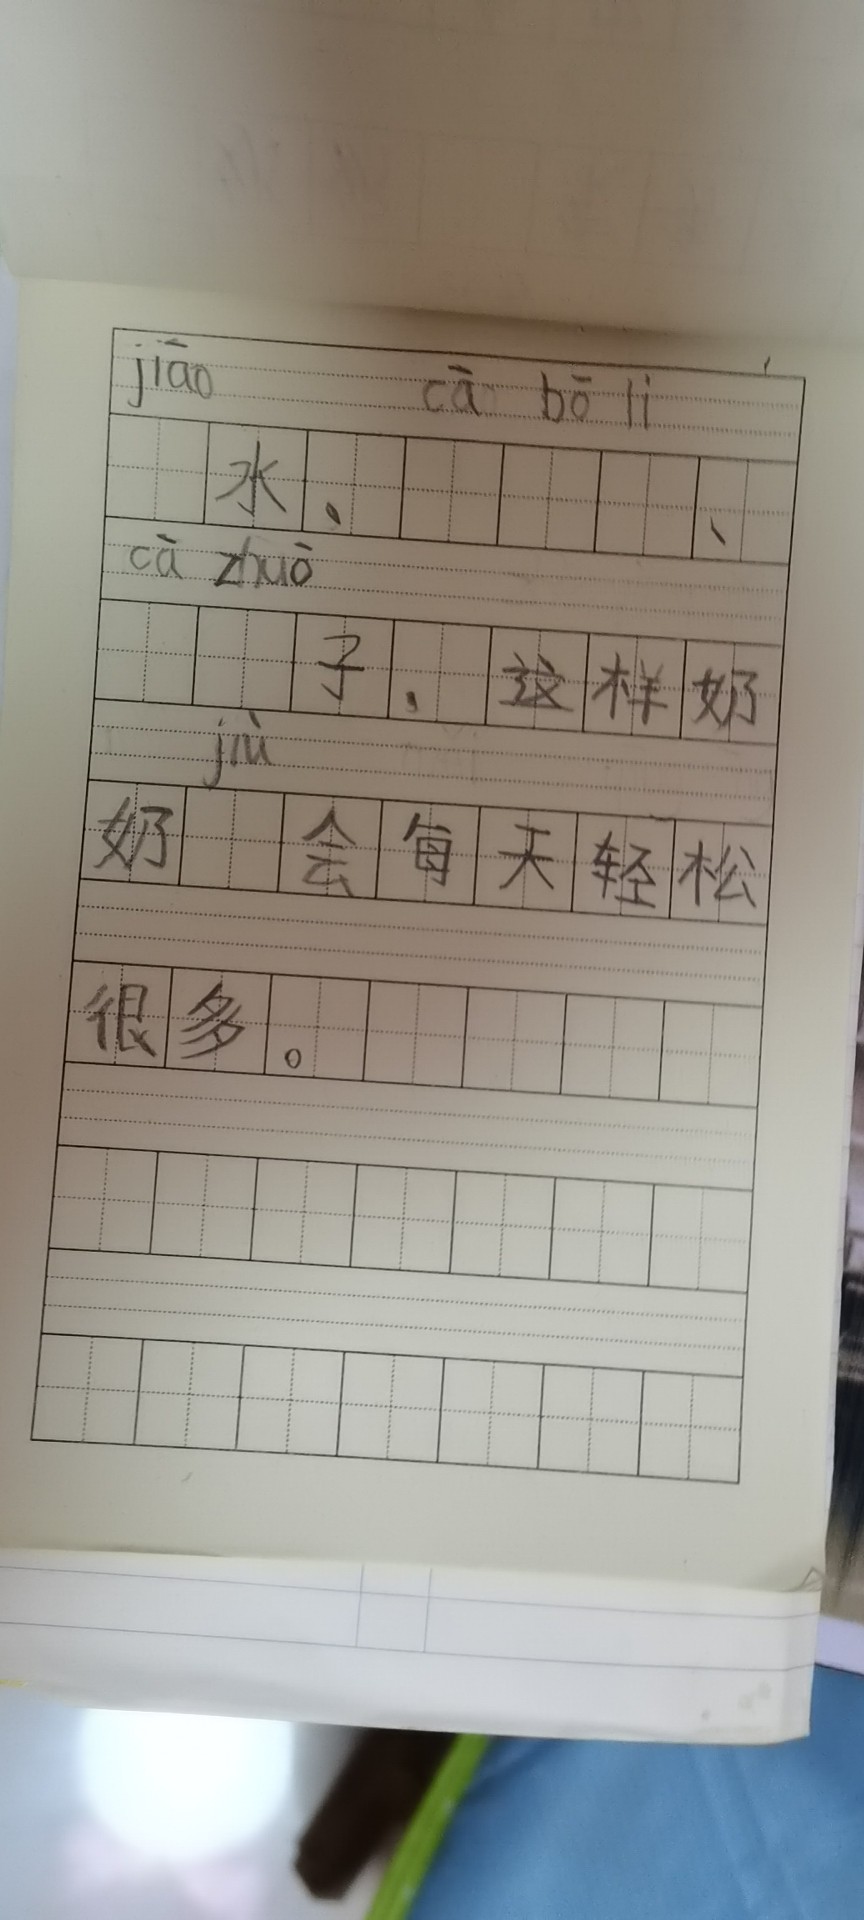 jiāo cā bō li
水、、
cā zhuō
子，这样奶
jiù
奶会每天轻松
很多。